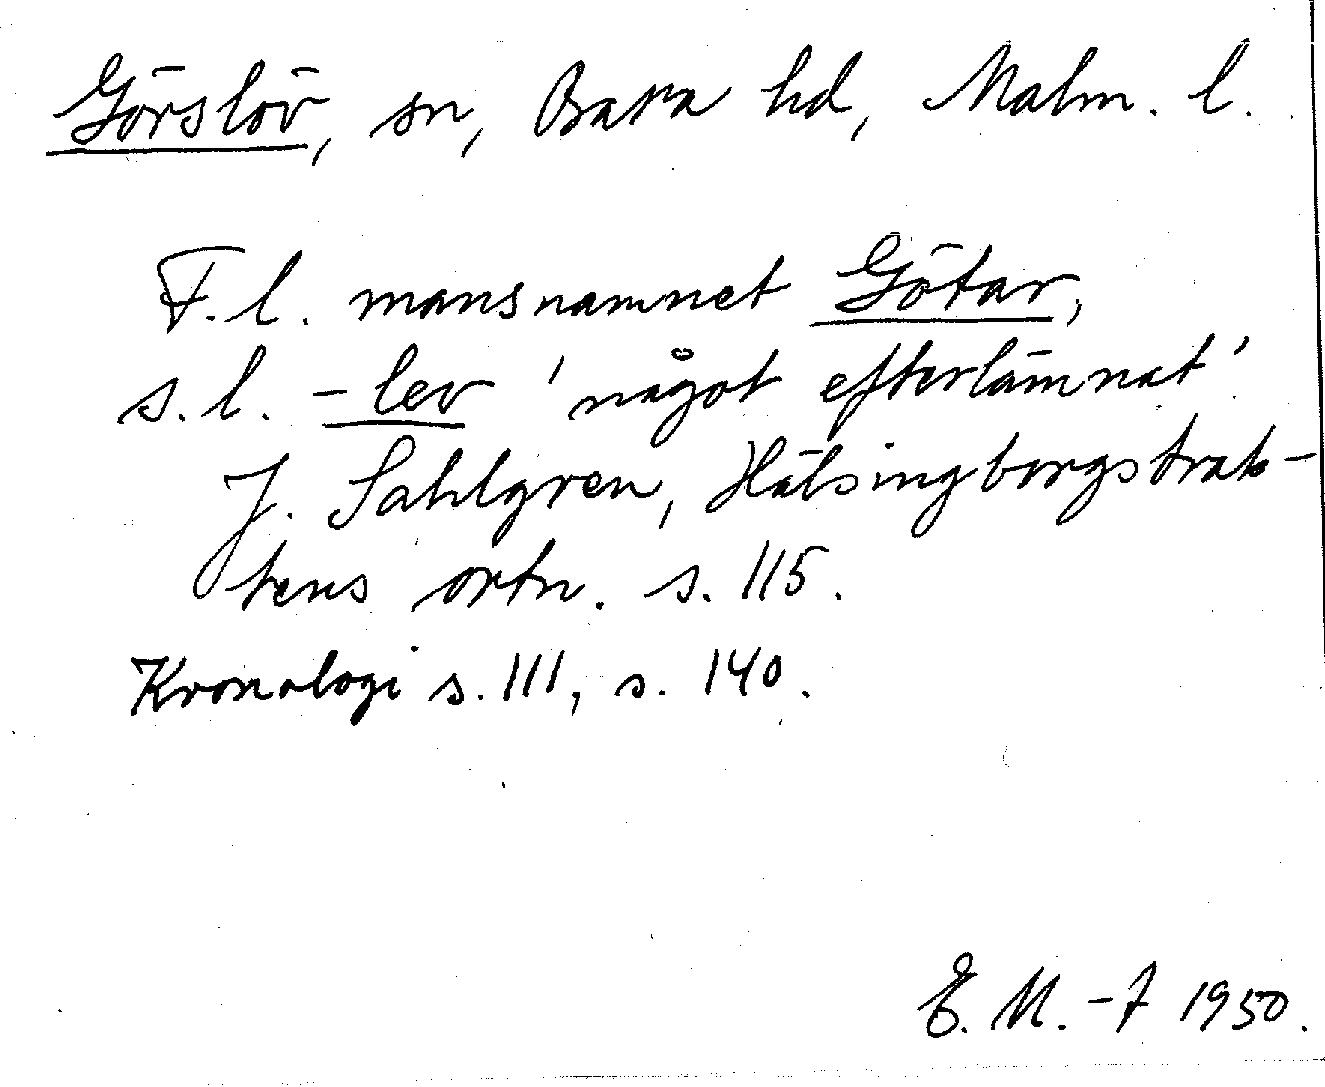 Görslöv, sn, Bara hd, Malm. l.
F.l. mansnamnet Götar,
s.l. -lev 'något efterlämnat'.
J. Sahlgren, Hälsingborgstrak-
tens ortn. s. 115.
Kronologi s. 111, s. 140.
E. M.-F 1950.